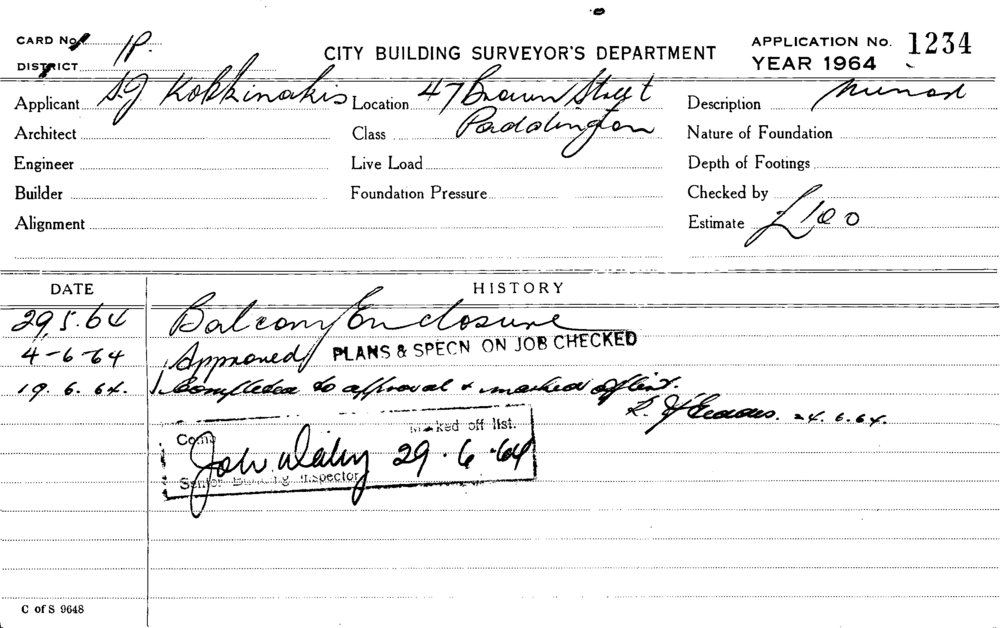 CARD No. 1P.
DISTRICT
CITY BUILDING SURVEYOR'S DEPARTMENT
APPLICATION No. 1234
YEAR 1964
Applicant S.J Kokkinakis Location 47 Brown Street
Description
Architect
Class Paddington
Nature of Foundation
Engineer
Live Load
Depth of Footings
Builder
Foundation Pressure
Checked by
Alignment
Estimate £100
DATE HISTORY
29.5.64 Balcony Enclosure
4-6-64 Approved PLANS & SPECN ON JOB CHECKED
19.6.64. Completed to approval & marked off list.
24.6.64.
marked off list.
29.6.64
Senior Building Inspector
C of S 9648